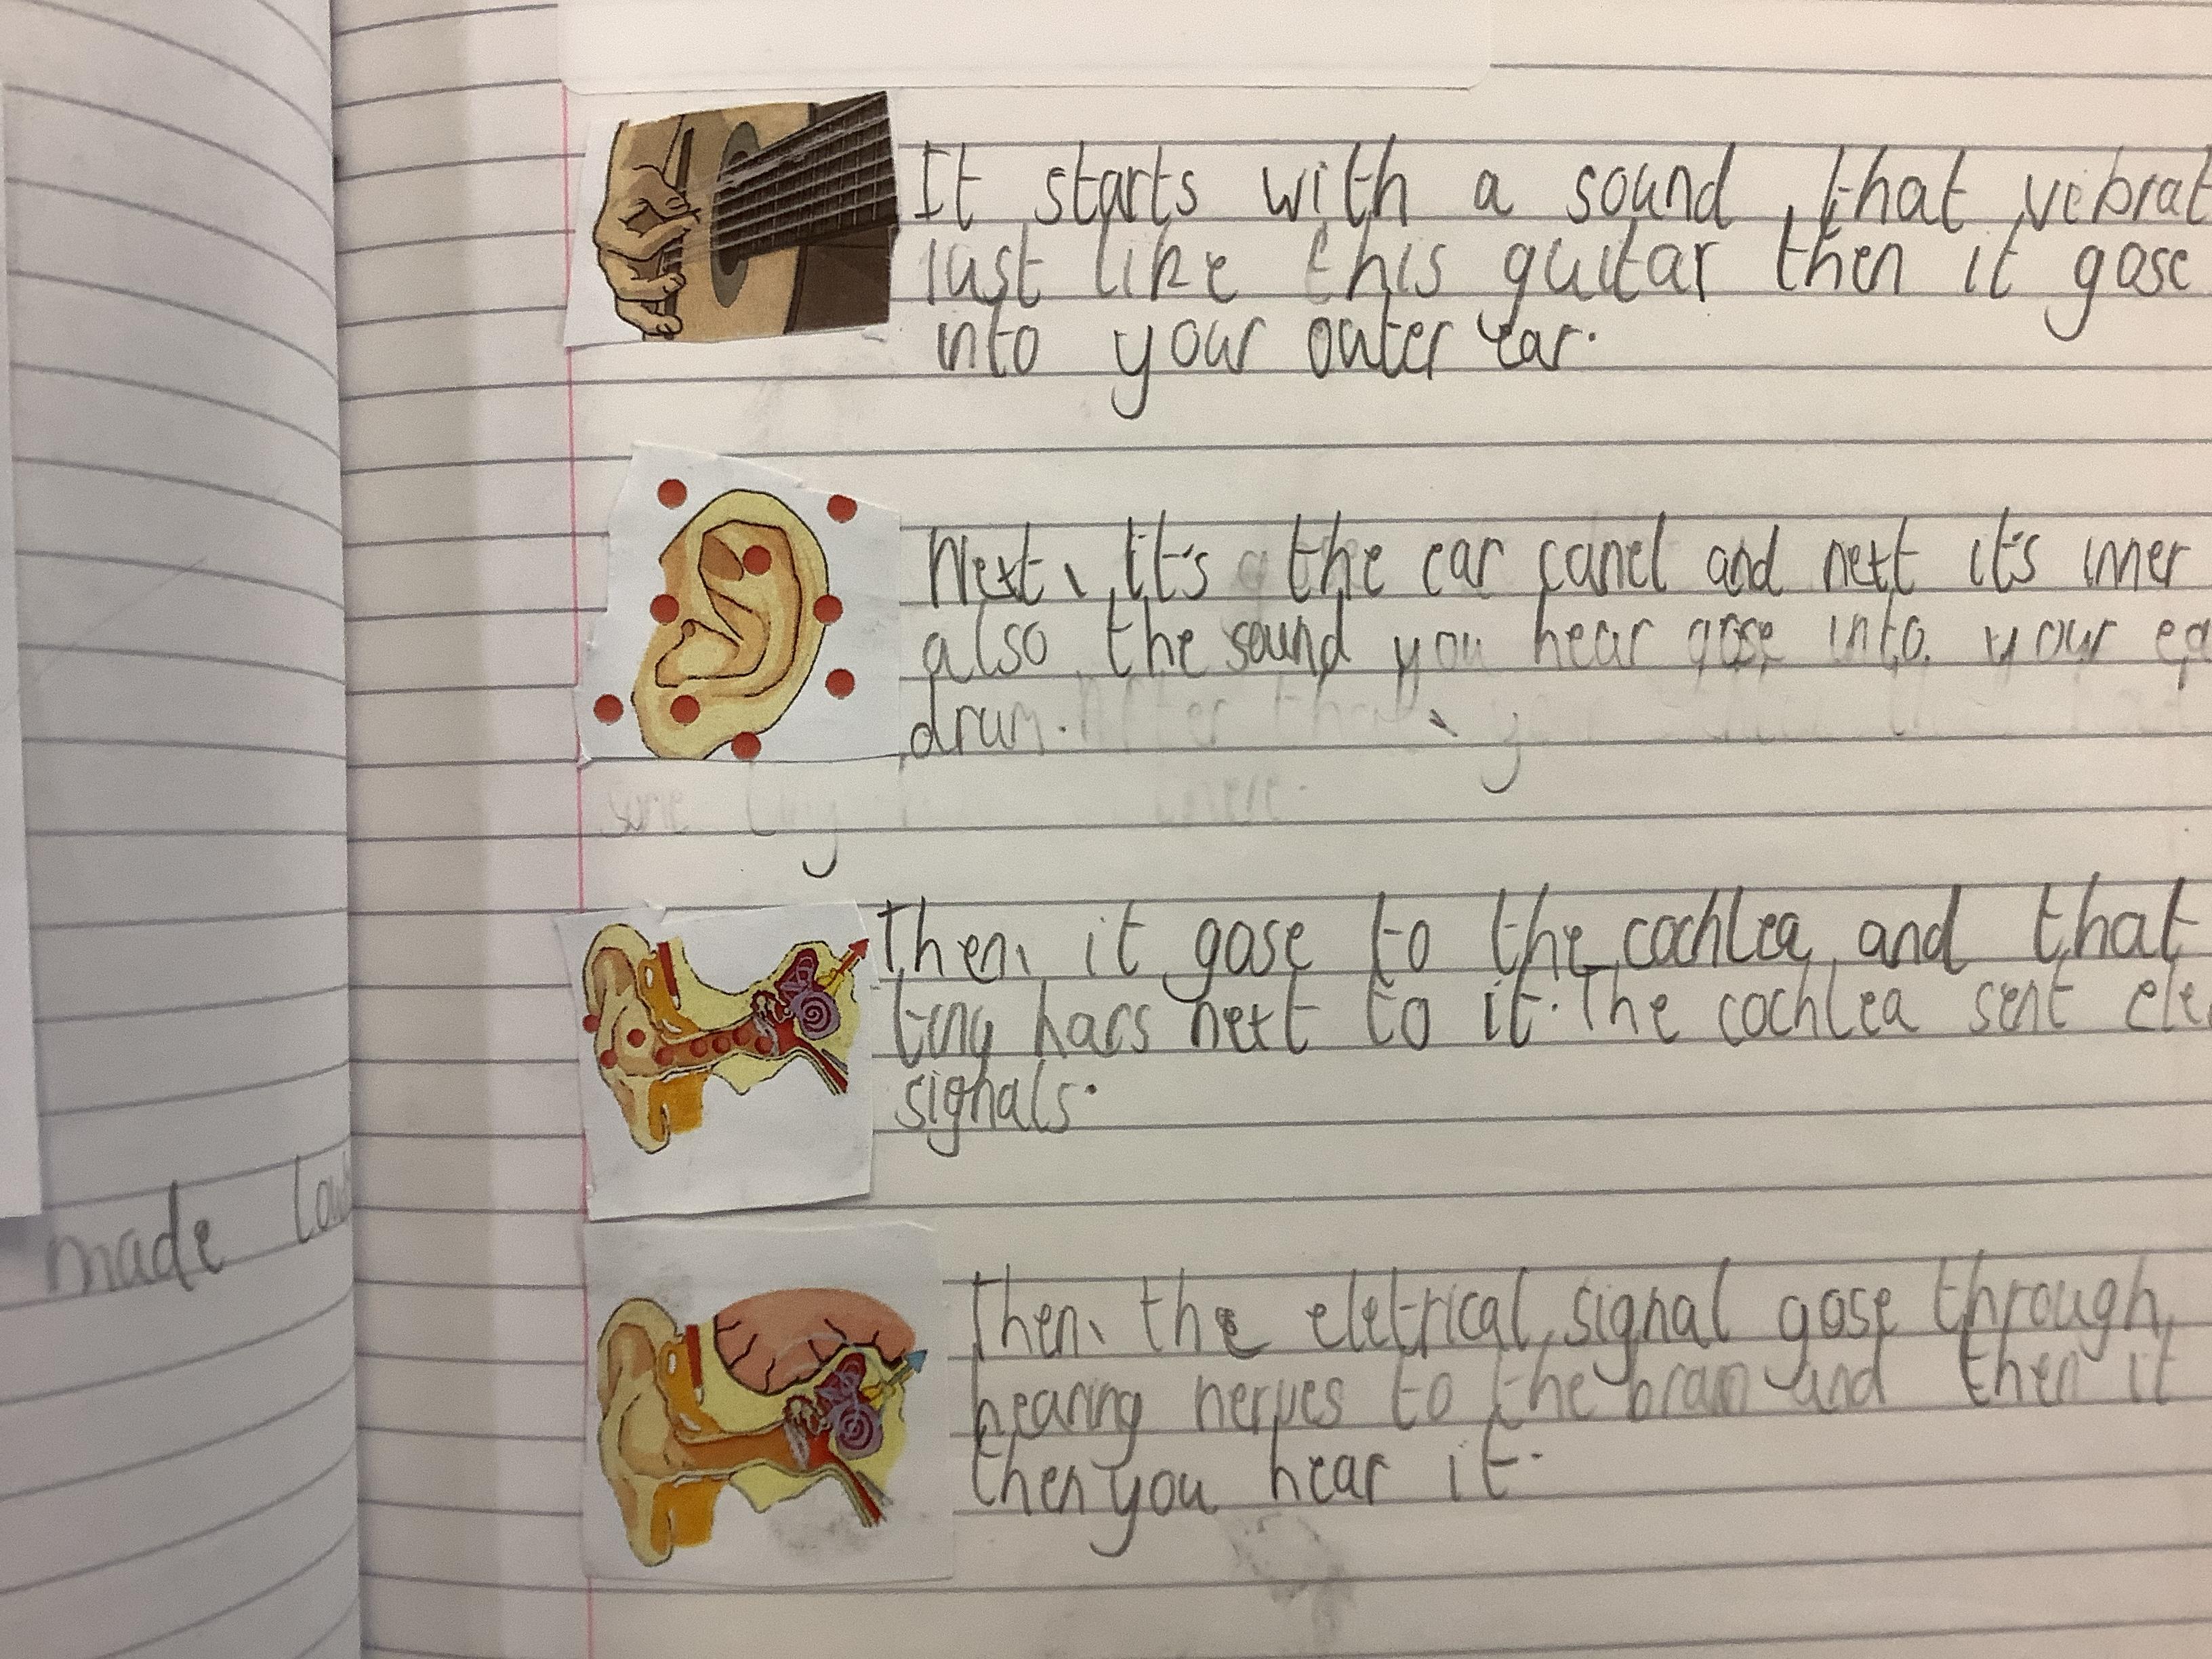 It starts with a sound that vibrat
just like this guitar then it gose
into your outer ear.
Next, it's the ear canel and next it's inner
also the sound you hear gose into your ea
drum. After that, y
some
Then, it gose to the cochlea and that
tiny hars next to it. The cochlea sent ele
signals.
made lou
Then, the eletrical signal gose through
hearing nerves to the brain and then it
then you hear it.